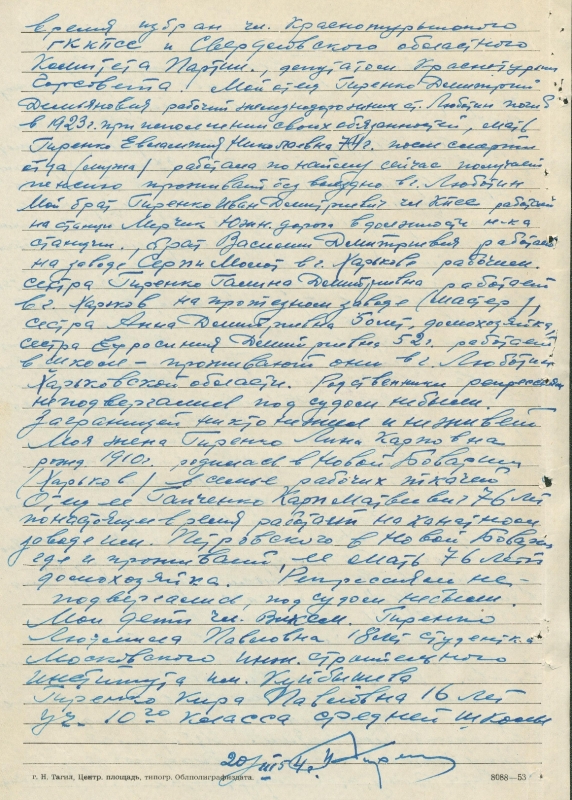 время избран чл. Краснотурьинского
ГККПСС и Свердловского областного
Комитета Партии., депутатом Краснотурьин
Горсовета. Мой отец Гиренко Дмитрий
Демьянович рабочий железнодорожник ст. Люботин погиб
в 1923 г. при исполнении своих обязанностей, мать
Гиренко Евлампия Николаевна 74 г. после смерти
отца (мужа) работала по найму сейчас получает
пенсию проживает безвыездно в г. Люботин
Мой брат Гиренко Иван Дмитриевич чл КПСС работает
на станции Мерчик Южн. дороги в должности н-ка
станции, брат Василий Дмитриевич работает
на заводе Серп и Молот в г. Харькове рабочим.
сестра Гиренко Галина Дмитриевна работает
в г. Харьков на заводе (мастер),
сестра Анна Дмитриевна домохозяйка,
сестра Ефросиния Дмитриевна 52 г. работает
в школе – проживают они в г. Люботин
Харьковской области. Родственники репрессиям
не подвергались под судом не были.
Заграницей никто не жил и не живет
Моя жена Гиренко Лина Карповна
рожд 1910 г. родилась в Новой Баварии
(Харьков) в семье рабочих ткачей
Отец ее Ганченко Карп Матвеевич 76 лет
по настоящим время работает на канатном
заводе им. Петровского в Новой Баварии
где и проживает, ее мать 76 лет
домохозяйка. Репрессиям не-
подвергались, под судом не были.
Мои дети чл. ВЛКСМ. Гиренко
Людмила Павловна 18 лет студентка
Московского инж. строительного
института им. Куйбышева
Гиренко Кира Павловна 16 лет
уч. 10го класса средней школы
20/III 54 г.
г. Н. Тагил, Центр. площадь, типогр. Облполиграфиздата. 8088—53